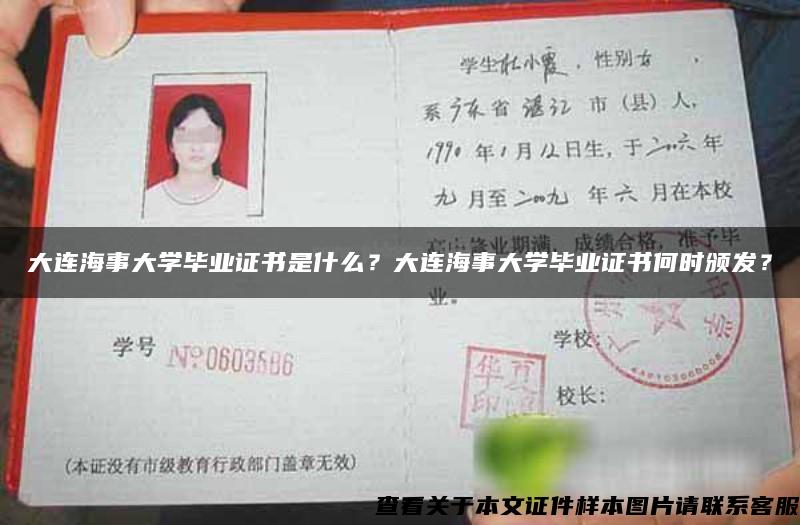 学生杜小霞，性别女，
系广东省湛江市（县）人，
1990年1月12日生，于二〇〇六年
九月至二〇〇九年六月在本校
修业期满，成绩合格，准予毕
大连海事大学毕业证书是什么？大连海事大学毕业证书何时颁发？
业。
学校：
学号 №0603586
校长：
（本证没有市级教育行政部门盖章无效）
查看关于本文证件样本图片请联系客服